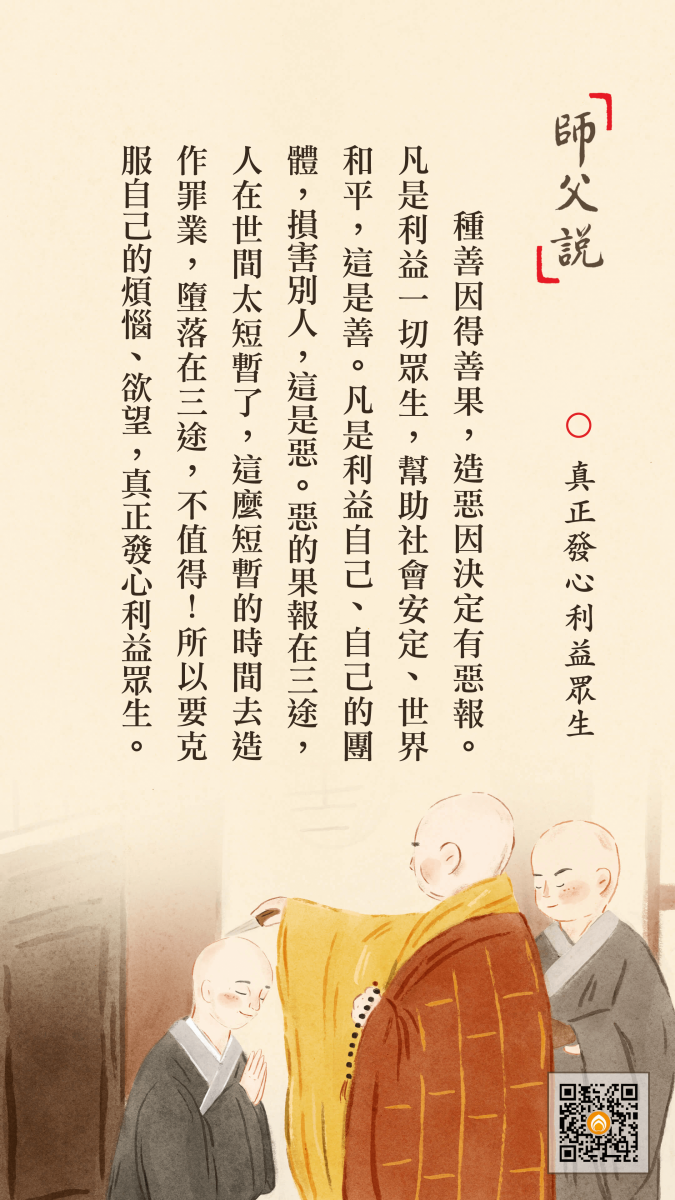 師父說
真正發心利益眾生
種善因得善果，造惡因決定有惡報。
凡是利益一切眾生，幫助社會安定、世界
和平，這是善。凡是利益自己、自己的團
體，損害別人，這是惡。惡的果報在三途，
人在世間太短暫了，這麼短暫的時間去造
作罪業，墮落在三途，不值得！所以要克
服自己的煩惱、欲望，真正發心利益眾生。